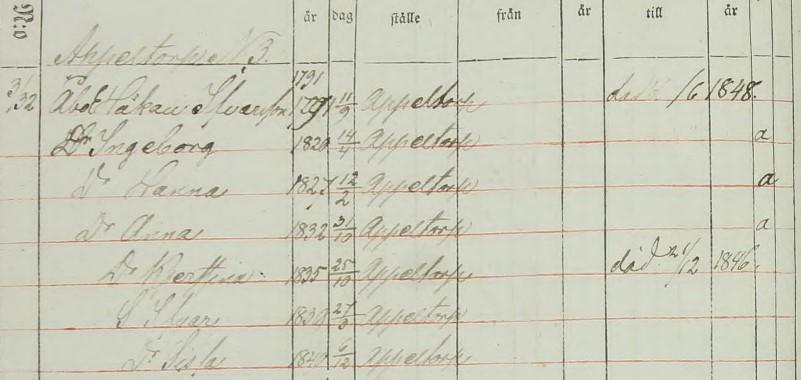 N:o år dag ställe från år till år
Appeltorp N 3.
1791
3/32 Åbo Håkan Ifvarsson 1791 11/9 Appeltorp död /6 1848.
Dr Ingeborg 1820 14/4 Appeltorp a
Dr Hanna 1827 12/2 Appeltorp a
Dr Anna 1832 31/10 Appeltorp a
Dr Kerstina 1835 25/10 Appeltorp död 21/12 1846.
S Ifvar 1838 27/3 Appeltorp
Dr Sissa 1840 6/12 Appeltorp